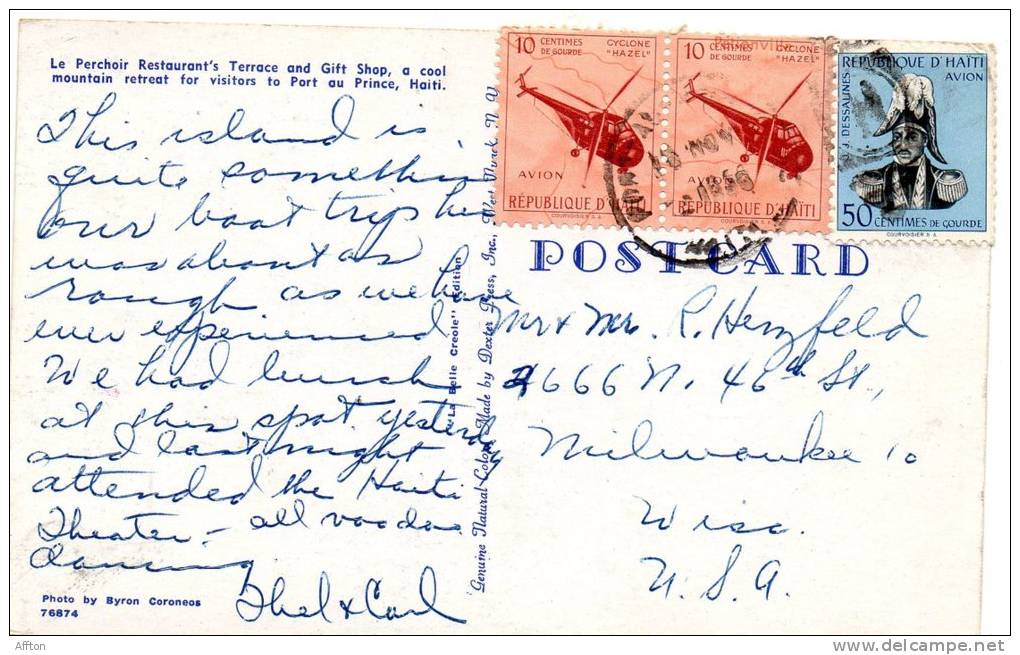 Le Perchoir Restaurant's Terrace and Gift Shop, a cool
mountain retreat for visitors to Port au Prince, Haiti.
This island is
quite something
our boat trip here
was about as
rough as we have
ever experienced
We had lunch
at this spot yesterday
and last night
attended the Haiti
Theater - all voodoo
dancing
& Carl
Photo by Byron Coroneos
76874
"La Belle Creole" Edition
Genuine Natural Color Made by Dexter Press, Inc., West Nyack, N. Y.
10 CENTIMES DE GOURDE
CYCLONE "HAZEL"
AVION
RÉPUBLIQUE D'HAÏTI
COURVOISIER S.A.
10 CENTIMES DE GOURDE
CYCLONE "HAZEL"
AVION
RÉPUBLIQUE D'HAÏTI
COURVOISIER S.A.
RÉPUBLIQUE D'HAÏTI
AVION
J.J. DESSALINES
50 CENTIMES DE GOURDE
COURVOISIER S.A.
NOV
1956
POST CARD
Mr & Mrs. R. Herzfeld
4666 N. 46th St.,
Milwaukee 10
Wisc.
U.S.A.
Affton
www.delcampe.net